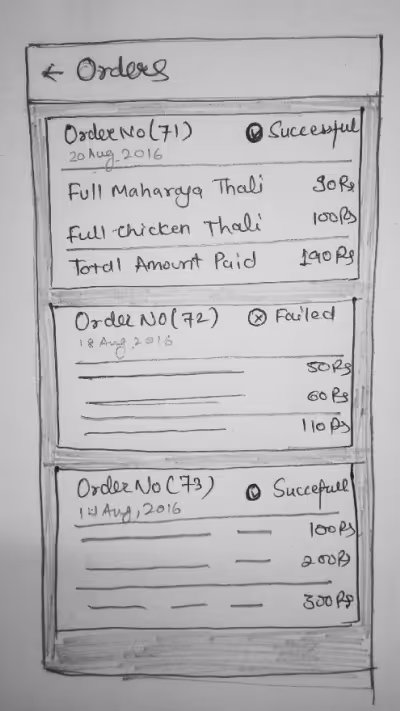 ← Orders
Order No (71) Successful
20 Aug, 2016
Full Maharaja Thali 90Rs
Full Chicken Thali 100Rs
Total Amount Paid 190Rs
Order No (72) Failed
18 Aug, 2016
50Rs
60Rs
110Rs
Order No (73) Succefull
Aug, 2016
100Rs
200Rs
300Rs